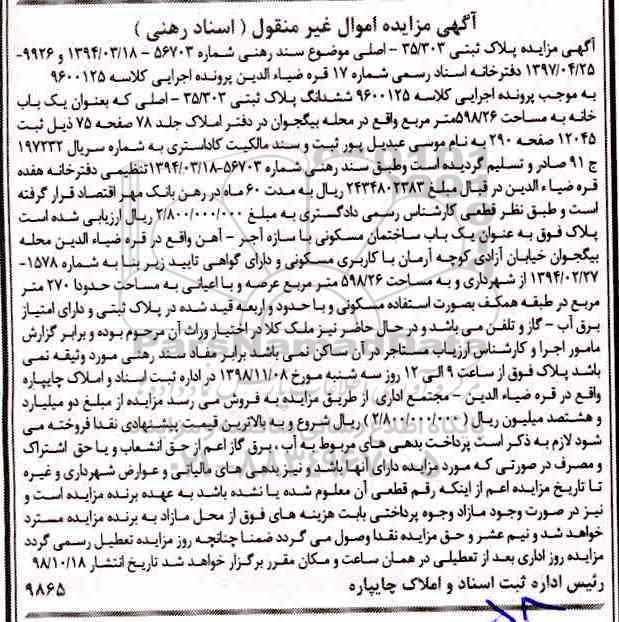 آگهی مزایده اموال غیر منقول ( اسناد رهنی )
آگهی مزایده پلاک ثبتی ۳۵/۳۰۳ - اصلی موضوع سند رهنی شماره ۵۶۷۰۳ - ۱۳۹۴/۰۳/۱۸ و ۹۹۲۶-
۱۳۹۷/۰۴/۲۵ دفترخانه اسناد رسمی شماره ۱۷ قره ضیاء الدین پرونده اجرایی کلاسه ۹۶۰۰۱۲۵
به موجب پرونده اجرایی کلاسه ۹۶۰۰۱۲۵ ششدانگ پلاک ثبتی ۳۵/۳۰۳ - اصلی که بعنوان یک باب
خانه به مساحت ۵۹۸/۲۶متر مربع واقع در محله بیگجوان در دفتر املاک جلد ۷۸ صفحه ۷۵ ذیل ثبت
۱۲۰۴۵ صفحه ۲۹۰ به نام موسی عبدیل پور ثبت و سند مالکیت کاداستری به شماره سریال ۱۹۷۲۳۲
ج ۹۱ صادر و تسلیم گردیده است وطبق سند رهنی شماره ۵۶۷۰۳-۱۳۹۴/۰۳/۱۸تنظیمی دفترخانه هفده
قره ضیاء الدین در قبال مبلغ ۲۴۳۴۸۰۲۳۸۳ ریال به مدت ۶۰ ماه در رهن بانک مهر اقتصاد قرار گرفته
است و طبق نظر قطعی کارشناس رسمی دادگستری به مبلغ ۲/۸۰۰/۰۰۰/۰۰۰ ریال ارزیابی شده است
پلاک فوق به عنوان یک باب ساختمان مسکونی با سازه آجر - آهن واقع در قره ضیاء الدین محله
بیگجوان خیابان آزادی کوچه آرمان با کاربری مسکونی و دارای گواهی تایید زیر بنا به شماره ۱۵۷۸-
۱۳۹۴/۰۲/۲۷ از شهرداری و به مساحت ۵۹۸/۲۶ متر مربع عرصه و با اعیانی به مساحت حدودا ۲۷۰ متر
مربع در طبقه همکف بصورت استفاده مسکونی و با حدود و اربعه قید شده در پلاک ثبتی و دارای امتیاز
برق آب - گاز و تلفن می باشد و در حال حاضر نیز ملک کلا در اختیار وراث آن مرحوم بوده و برابر گزارش
مامور اجرا و کارشناس ارزیاب مستاجر در آن ساکن نمی باشد برابر مفاد سند رهنی مورد وثیقه نمی
باشد پلاک فوق از ساعت ۹ الی ۱۲ روز سه شنبه مورخ ۱۳۹۸/۱۱/۰۸ در اداره ثبت اسناد و املاک چایپاره
واقع در قره ضیاء الدین - مجتمع اداری از طریق مزایده به فروش می رسد مزایده از مبلغ دو میلیارد
و هشتصد میلیون ریال (۲/۸۰۰/۰۰۰/۰۰۰ ) ریال شروع و به بالاترین قیمت پیشنهادی نقدا فروخته می
شود لازم به ذکر است پرداخت بدهی های مربوط به آب ، برق گاز اعم از حق انشعاب و یا حق اشتراک
و مصرف در صورتی که مورد مزایده دارای آنها باشد و نیز بدهی های مالیاتی و عوارض شهرداری و غیره
تا تاریخ مزایده اعم از اینکه رقم قطعی آن معلوم شده یا نشده باشد به عهده برنده مزایده است و
نیز در صورت وجود مازاد وجوه پرداختی بابت هزینه های فوق از محل مازاد به برنده مزایده مسترد
خواهد شد و نیم عشر و حق مزایده نقدا وصول می گردد ضمنا چنانچه روز مزایده تعطیل رسمی گردد
مزایده روز اداری بعد از تعطیلی در همان ساعت و مکان مقرر برگزار خواهد شد تاریخ انتشار ۹۸/۱۰/۱۸
رئیس اداره ثبت اسناد و املاک چایپاره
۹۸۶۵